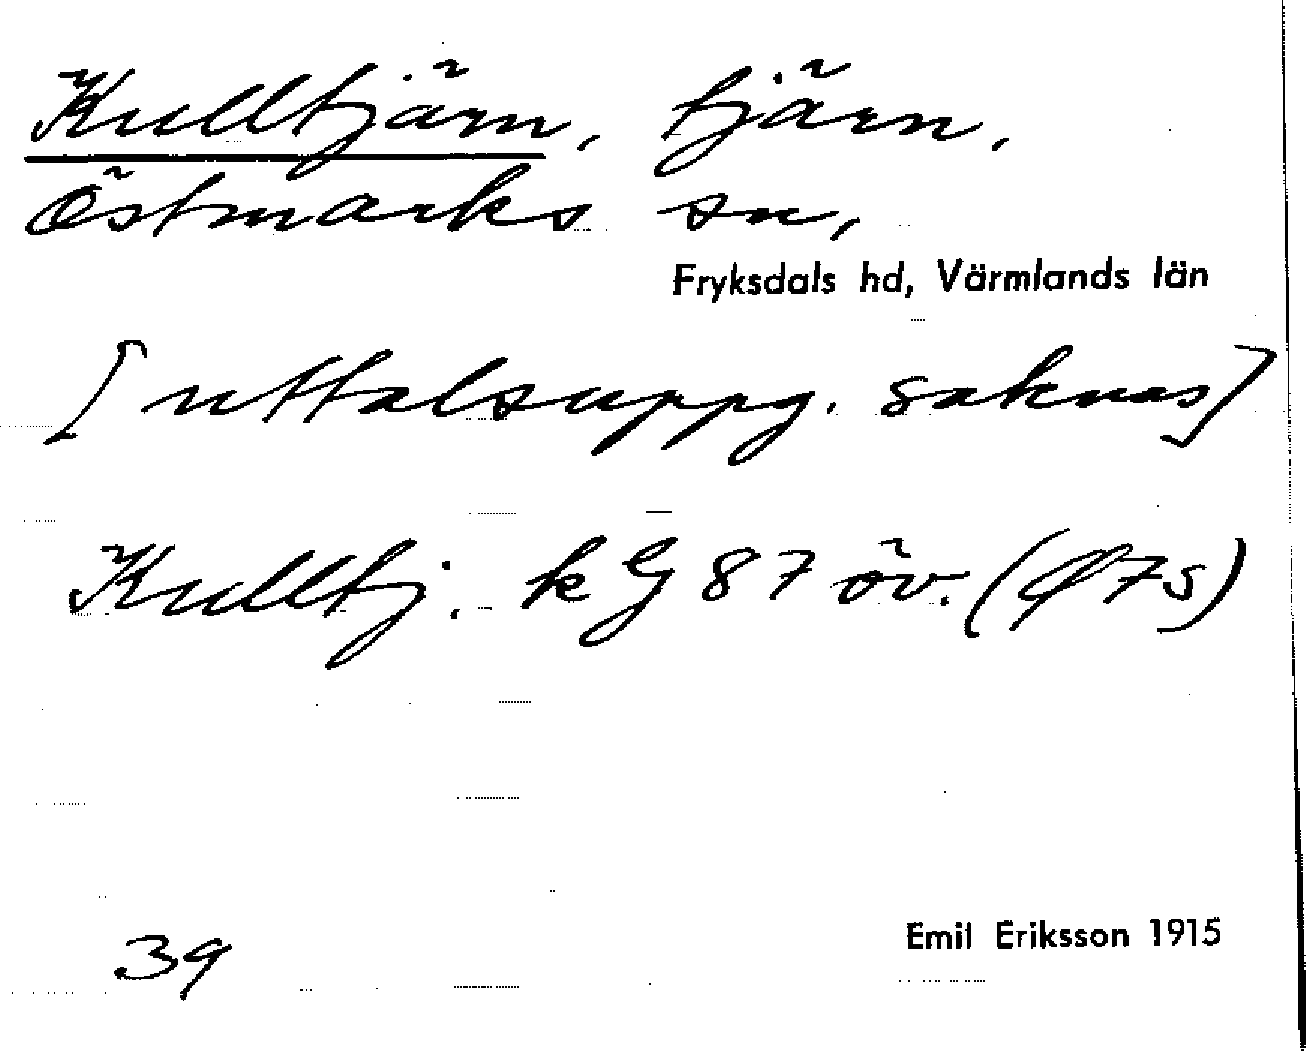 Kulltjärn, tjärn,
Östmarks sn,
Fryksdals hd, Värmlands län
[uttalsuppg. saknas]
Kulltj. kG 87 öv.
39
Emil Eriksson 1915